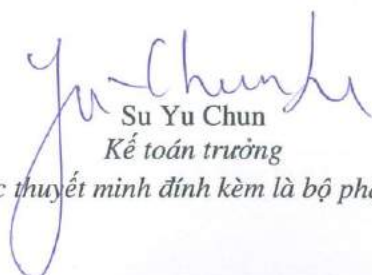 Yu-Chun Su
Su Yu Chun
Kế toán trưởng
thuyết minh đính kèm là bộ